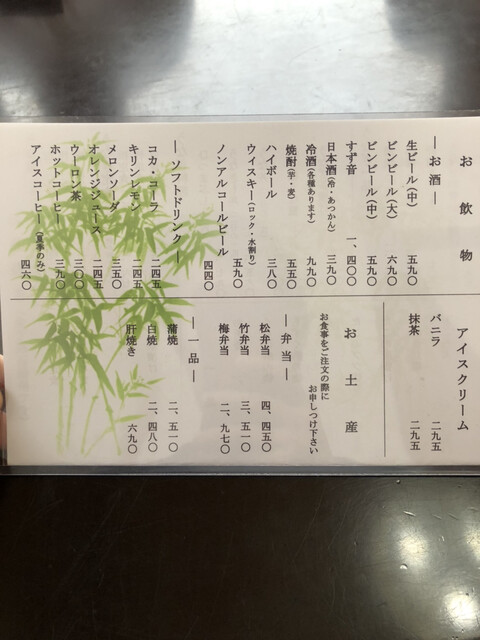 お飲物
―お酒―
生ビール(中) 五九〇
ビンビール(大) 六九〇
ビンビール(中) 五九〇
すず音 一、四〇〇
日本酒(冷・あつかん) 三九〇
冷酒(各種あります) 九九〇
焼酎(芋・麦) 五五〇
ハイボール 三八〇
ウィスキー(ロック・水割り) 五九〇
ノンアルコールビール 四四〇
―ソフトドリンク―
コカ・コーラ 二四五
キリンレモン 二四五
メロンソーダ 三五〇
オレンジジュース 二四五
ウーロン茶 三〇〇
ホットコーヒー 三九〇
アイスコーヒー(夏季のみ) 四六〇
アイスクリーム
バニラ 二九五
抹茶 二九五
お土産
お食事をご注文の際に
お申しつけ下さい
―弁当―
松弁当 四、四五〇
竹弁当 三、五一〇
梅弁当 二、九七〇
―一品―
蒲焼 二、五一〇
白焼 二、四八〇
肝焼き 六九〇